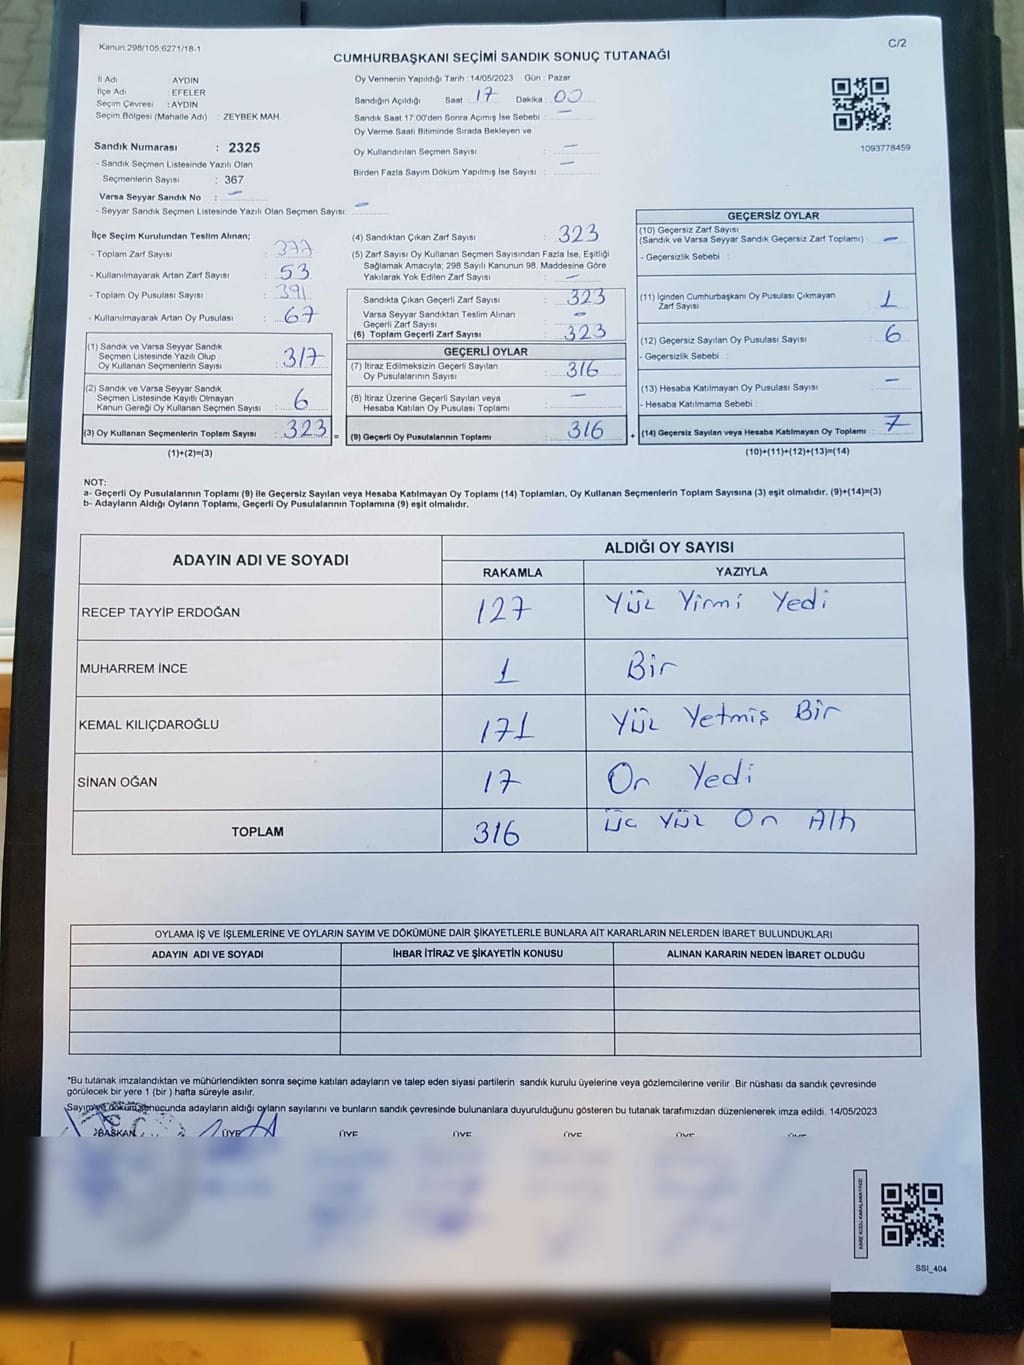 Kanun,298/105,6271/18-1
C/2
CUMHURBAŞKANI SEÇİMİ SANDIK SONUÇ TUTANAĞI
İl Adı AYDIN
İlçe Adı : EFELER
Seçim Çevresi : AYDIN
Seçim Bölgesi (Mahalle Adı) : ZEYBEK MAH.
Oy Vermenin Yapıldığı Tarih : 14/05/2023 Gün : Pazar
Sandığın Açıldığı Saat : 17 Dakika : 00
Sandık Saat 17:00'den Sonra Açımış İse Sebebi : —
Oy Verme Saati Bitiminde Sırada Bekleyen ve
Oy Kullandırılan Seçmen Sayısı : —
Birden Fazla Sayım Döküm Yapılmış İse Sayısı : —
1093778459
Sandık Numarası : 2325
- Sandık Seçmen Listesinde Yazılı Olan
Seçmenlerin Sayısı : 367
Varsa Seyyar Sandık No : —
- Seyyar Sandık Seçmen Listesinde Yazılı Olan Seçmen Sayısı: —
İlçe Seçim Kurulundan Teslim Alınan;
- Toplam Zarf Sayısı : 377
- Kullanılmayarak Artan Zarf Sayısı : 53
- Toplam Oy Pusulası Sayısı : 391
- Kullanılmayarak Artan Oy Pusulası : 67
(1) Sandık ve Varsa Seyyar Sandık
Seçmen Listesinde Yazılı Olup
Oy Kullanan Seçmenlerin Sayısı : 317
(2) Sandık ve Varsa Seyyar Sandık
Seçmen Listesinde Kayıtlı Olmayan
Kanun Gereği Oy Kullanan Seçmen Sayısı : 6
(3) Oy Kullanan Seçmenlerin Toplam Sayısı : 323 =
(1)+(2)=(3)
(4) Sandıktan Çıkan Zarf Sayısı : 323
(5) Zarf Sayısı Oy Kullanan Seçmen Sayısından Fazla İse, Eşitliği
Sağlamak Amacıyla; 298 Sayılı Kanunun 98. Maddesine Göre
Yakılarak Yok Edilen Zarf Sayısı : —
Sandıkta Çıkan Geçerli Zarf Sayısı : 323
Varsa Seyyar Sandıktan Teslim Alınan
Geçerli Zarf Sayısı : —
(6) Toplam Geçerli Zarf Sayısı : 323
GEÇERLİ OYLAR
(7) İtiraz Edilmeksizin Geçerli Sayılan
Oy Pusulalarının Sayısı : 316
(8) İtiraz Üzerine Geçerli Sayılan veya
Hesaba Katılan Oy Pusulası Toplamı : —
(9) Geçerli Oy Pusulalarının Toplamı : 316 +
GEÇERSİZ OYLAR
(10) Geçersiz Zarf Sayısı
(Sandık ve Varsa Seyyar Sandık Geçersiz Zarf Toplamı) : —
- Geçersizlik Sebebi :
(11) İçinden Cumhurbaşkanı Oy Pusulası Çıkmayan
Zarf Sayısı : 1
(12) Geçersiz Sayılan Oy Pusulası Sayısı : 6
- Geçersizlik Sebebi :
(13) Hesaba Katılmayan Oy Pusulası Sayısı : —
- Hesaba Katılmama Sebebi :
(14) Geçersiz Sayılan veya Hesaba Katılmayan Oy Toplamı : 7
(10)+(11)+(12)+(13)=(14)
NOT:
a- Geçerli Oy Pusulalarının Toplamı (9) ile Geçersiz Sayılan veya Hesaba Katılmayan Oy Toplamı (14) Toplamları, Oy Kullanan Seçmenlerin Toplam Sayısına (3) eşit olmalıdır. (9)+(14)=(3)
b- Adayların Aldığı Oyların Toplamı, Geçerli Oy Pusulalarının Toplamına (9) eşit olmalıdır.
ADAYIN ADI VE SOYADI ALDIĞI OY SAYISI
RAKAMLA YAZIYLA
RECEP TAYYİP ERDOĞAN 127 Yüz Yirmi Yedi
MUHARREM İNCE 1 Bir
KEMAL KILIÇDAROĞLU 171 Yüz Yetmiş Bir
SİNAN OĞAN 17 On Yedi
TOPLAM 316 üc yüz On Altı
OYLAMA İŞ VE İŞLEMLERİNE VE OYLARIN SAYIM VE DÖKÜMÜNE DAİR ŞİKAYETLERLE BUNLARA AİT KARARLARIN NELERDEN İBARET BULUNDUKLARI
ADAYIN ADI VE SOYADI İHBAR İTİRAZ VE ŞİKAYETİN KONUSU ALINAN KARARIN NEDEN İBARET OLDUĞU
*Bu tutanak imzalandıktan ve mühürlendikten sonra seçime katılan adayların ve talep eden siyasi partilerin sandık kurulu üyelerine veya gözlemcilerine verilir .Bir nüshası da sandık çevresinde
görülecek bir yere 1 (bir ) hafta süreyle asılır.
Sayım ve döküm sonucunda adayların aldığı oyların sayılarını ve bunların sandık çevresinde bulunanlara duyurulduğunu gösteren bu tutanak tarafımızdan düzenlenerek imza edildi. 14/05/2023
BAŞKAN ÜYE ÜYE ÜYE ÜYE ÜYE ÜYE
KARE KODU KARALAMAYINIZ!
SSI_404